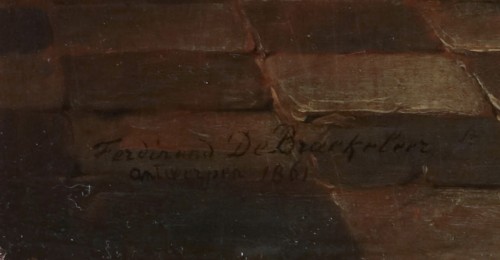 Ferdinand De Braekeleer
antwerpen 1861